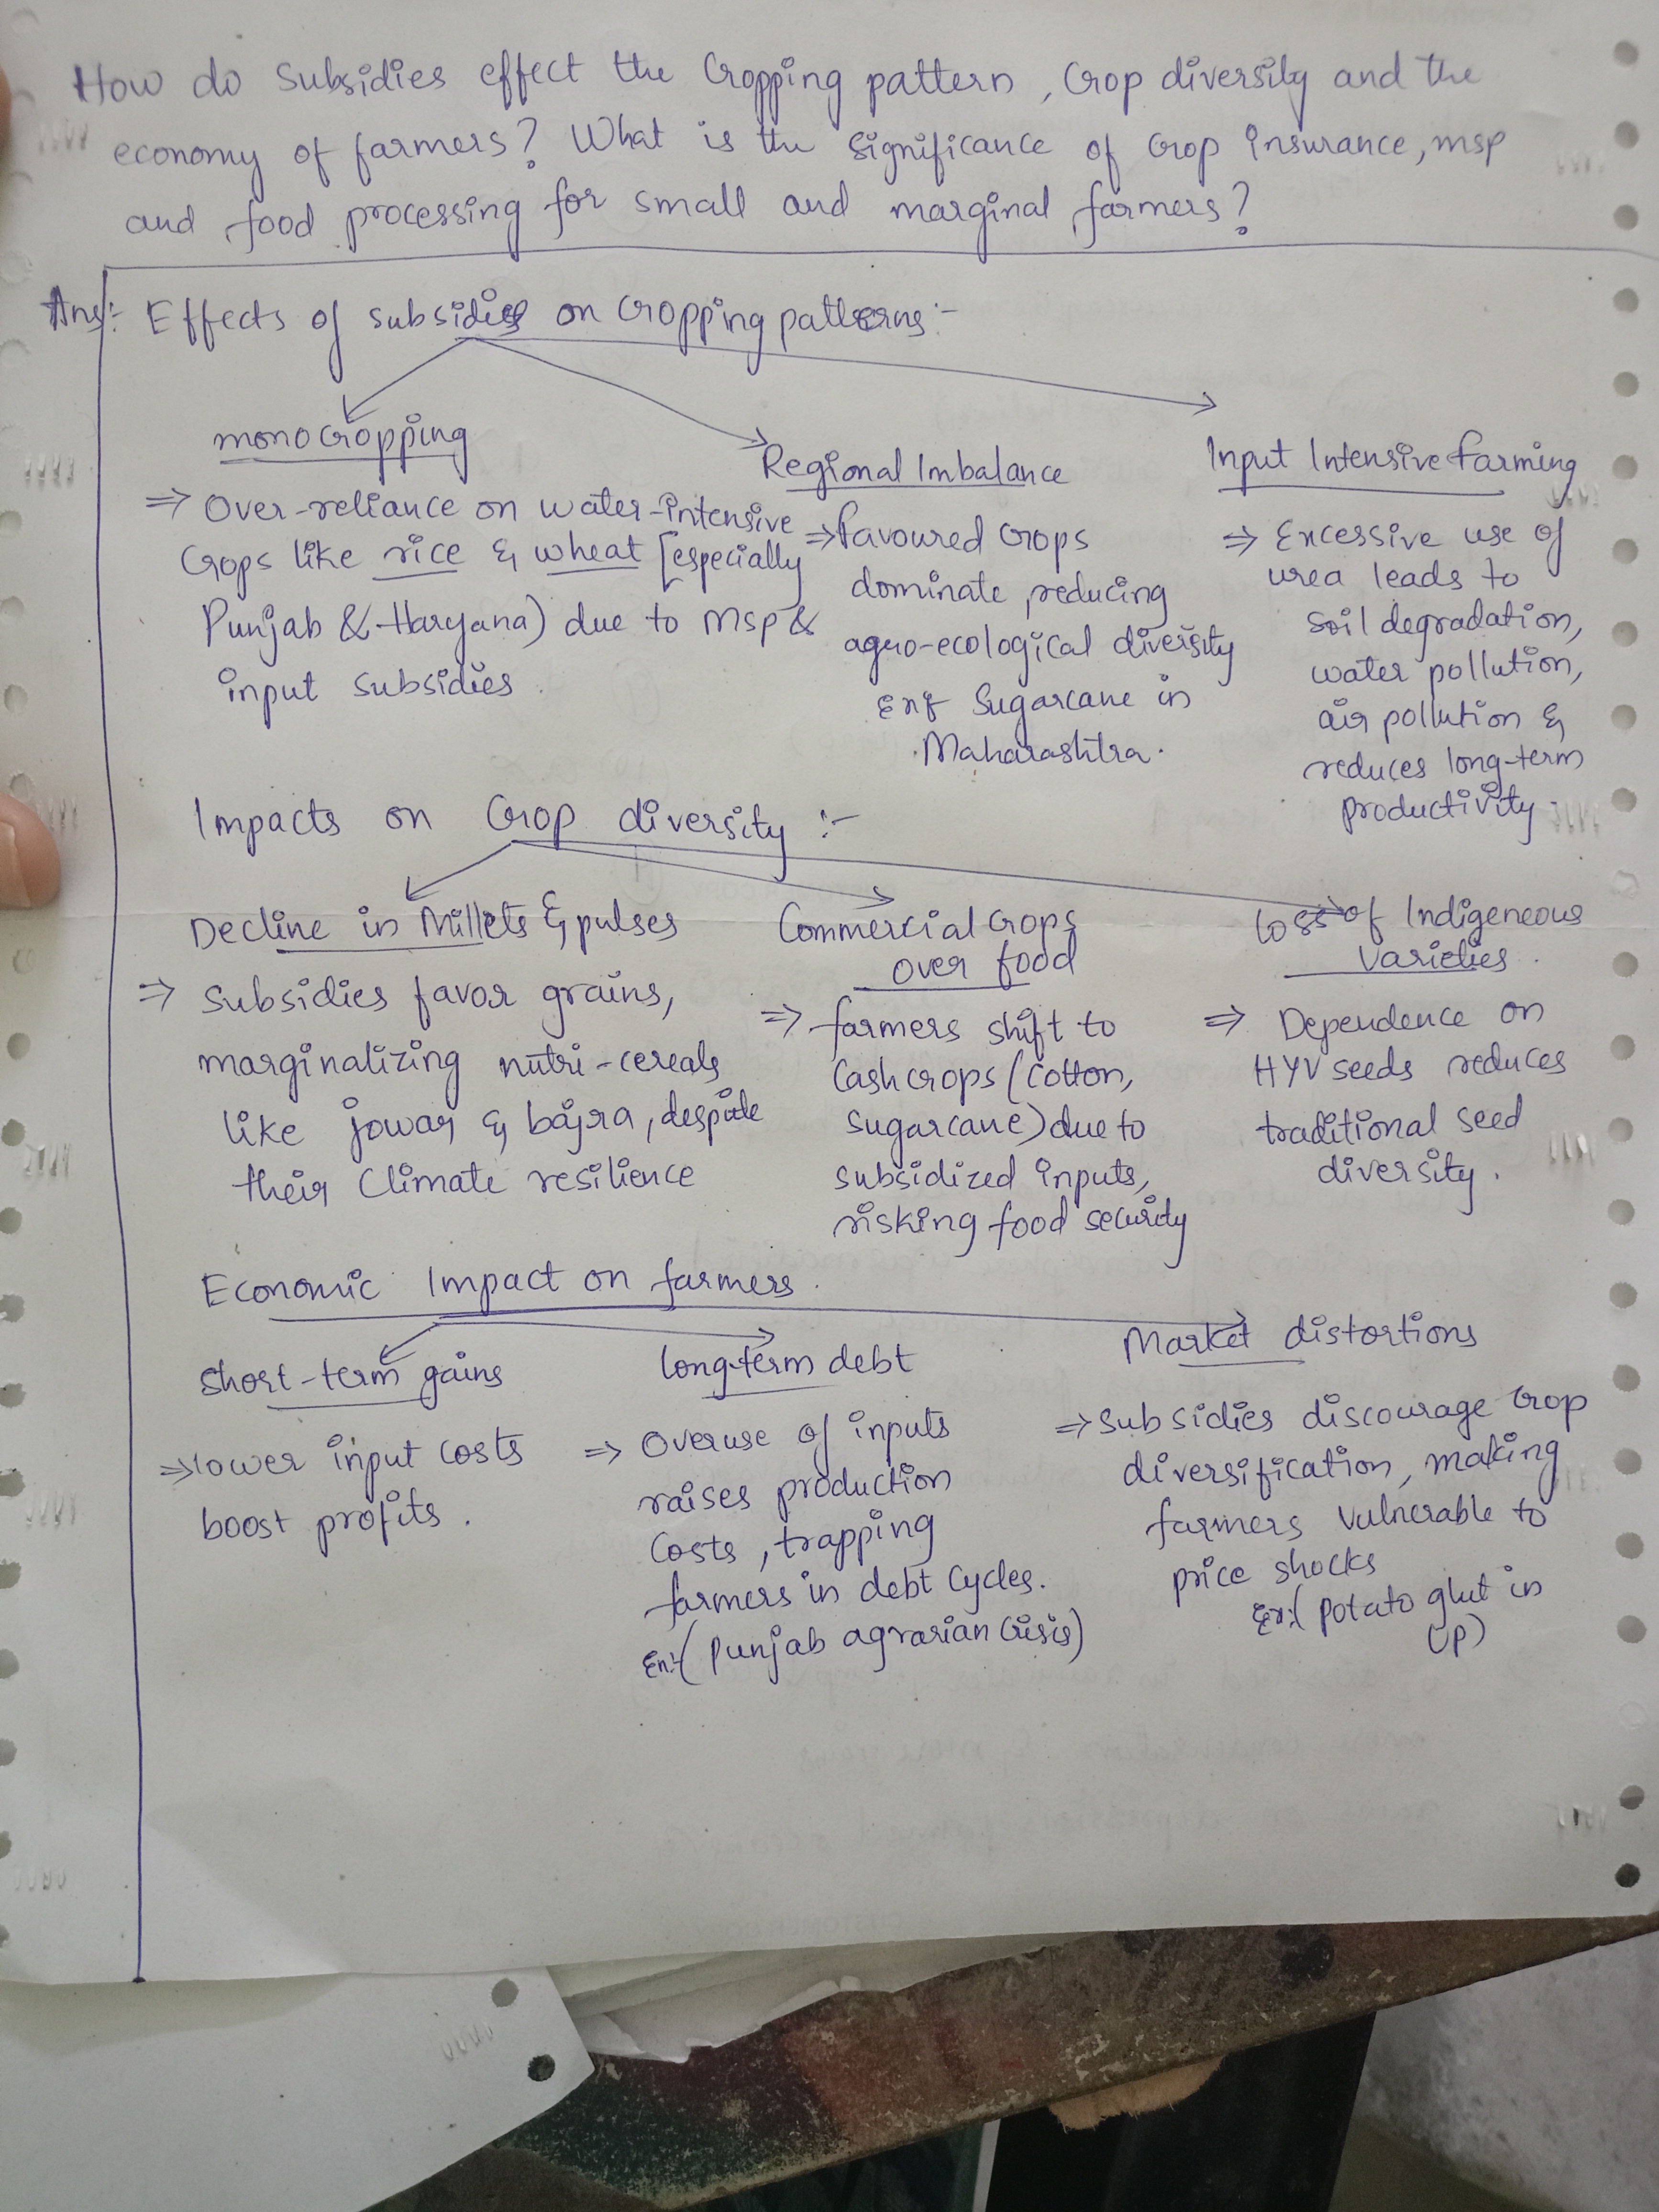 How do subsidies effect the Cropping pattern, Crop diversity and the
economy of farmers? What is the significance of crop insurance, msp
and food processing for small and marginal farmers?
Ans:- Effects of subsidies on cropping patterns:-
monocropping
⇒ Over-reliance on water-intensive
Crops like rice & wheat [especially
Punjab & Haryana) due to MSP &
input subsidies.
Regional Imbalance
⇒ favoured crops
dominate, reducing
agro-ecological diversity
Ex:- Sugarcane in
Maharashtra.
Input Intensive farming
⇒ Excessive use of
urea leads to
soil degradation,
water pollution,
air pollution &
reduces long-term
productivity.
Impacts on Crop diversity :-
Decline in Millets & pulses
⇒ Subsidies favor grains,
marginalizing nutri-cereals
like jowar & bajra, despite
their Climate resilience
Commercial crops
over food
⇒ farmers shift to
Cash crops (cotton,
sugarcane) due to
subsidized inputs,
risking food security
loss of Indigeneous
varieties.
⇒ Dependence on
HYV seeds reduces
traditional seed
diversity.
Economic Impact on farmers.
Short-term gains
⇒ lower input costs
boost profits.
long-term debt
⇒ Overuse of inputs
raises production
Costs, trapping
farmers in debt cycles.
Ex:- (Punjab agrarian Crisis)
Market distortions
⇒ Subsidies discourage crop
diversification, making
farmers vulnerable to
price shocks
Ex:- (Potato glut in
UP)